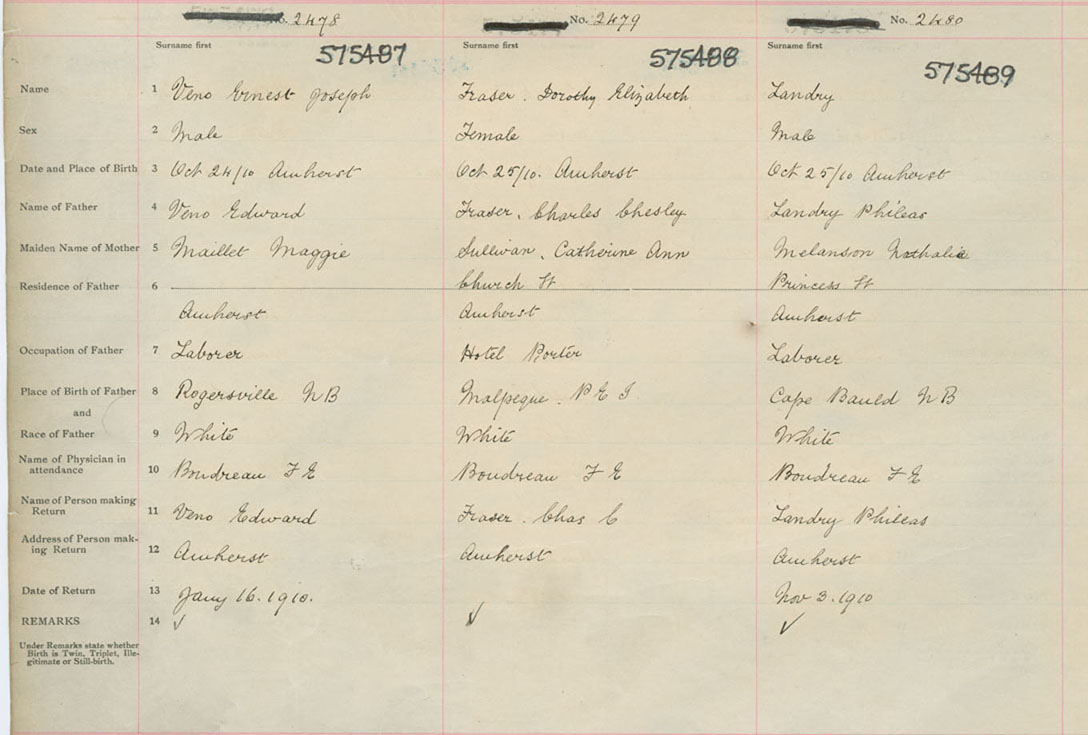 No. 2478 No. 2479 No. 2480
Surname first 575487 Surname first 575488 Surname first 575489
Name 1 Veno Ernest Joseph Fraser. Dorothy Elizabeth Landry
Sex 2 Male Female Male
Date and Place of Birth 3 Oct 24/10 Amherst Oct 25/10. Amherst Oct 25/10 Amherst
Name of Father 4 Veno Edward Fraser, Charles Chesley Landry Phileas
Maiden Name of Mother 5 Maillet Maggie Sullivan, Catherine Ann Melanson Nathalie
Residence of Father 6 Church St Princess St
Amherst Amherst Amherst
Occupation of Father 7 Laborer Hotel Porter Laborer
Place of Birth of Father 8 Rogersville N B Malpeque. P E I Cape Bauld N B
and
Race of Father 9 White White White
Name of Physician in
attendance 10 Boudreau F E Boudreau F E Boudreau F E
Name of Person making
Return 11 Veno Edward Fraser. Chas C Landry Phileas
Address of Person mak-
ing Return 12 Amherst Amherst Amherst
Date of Return 13 Jany 16. 1910. Nov 3. 1910
REMARKS 14 ✓ ✓ ✓
Under Remarks state whether
Birth is Twin, Triplet, Ille-
gitimate or Still-birth.